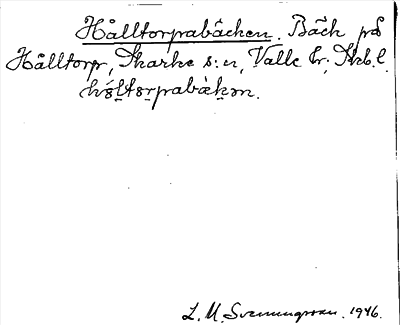 Hålltorpabäcken. Bäck på
Hålltorp, Skarke s:n, Valle hr, Skb. l.
hål̠tor̠pabäk̠ən.
L. M. Svenungsson. 1946.